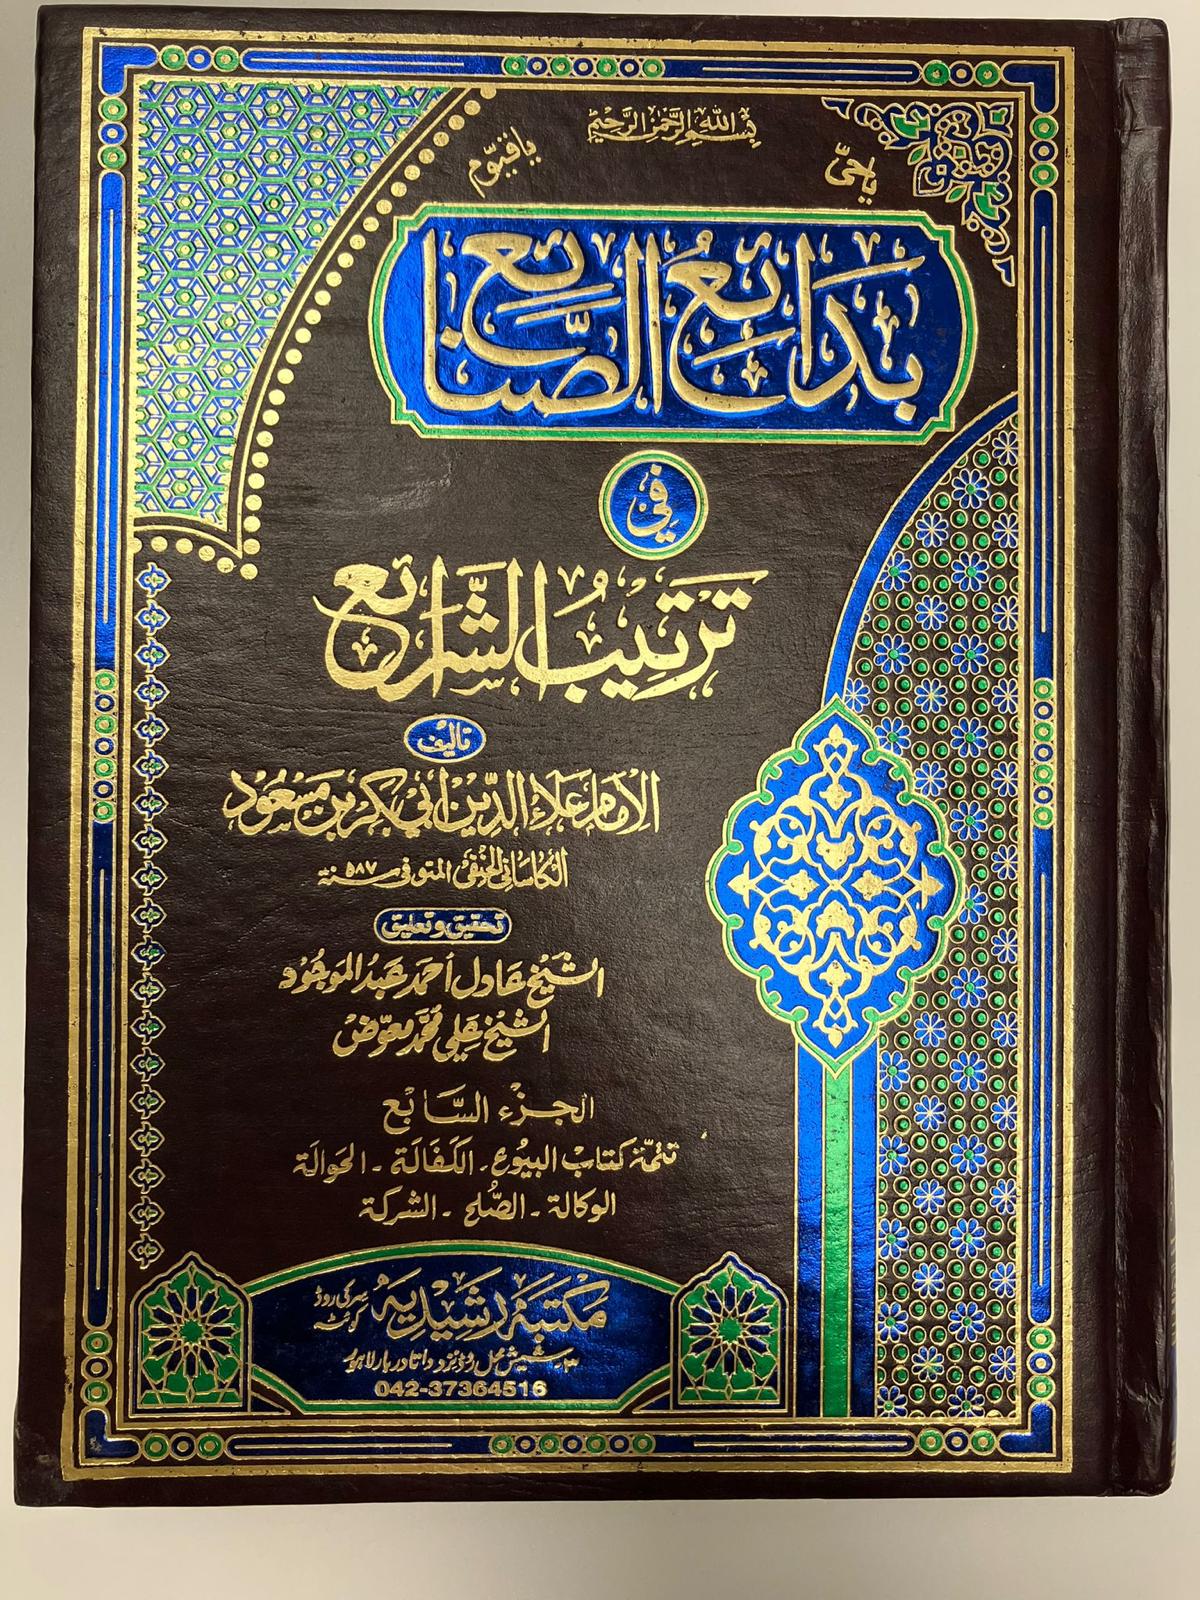 بِسْمِ اللهِ الرَّحْمٰنِ الرَّحِيْمِ
يا حيّ
يا قيّوم
بَدَائِعُ الصَّنَائِعِ
فِي
تَرتِيبُ الشَّرَائِعِ
تاليف
الامام عَلاء الدِّين أبي بكر بن مَسْعُوْد
الكاساني الحنفي المتوفى سنة ۵۸۷
تحقيق وتعليق
الشَّيْخ عَادل أحمَد عَبدُ الموجُوْد
الشَّيْخ عَلي محمَّد معوّضْ
الجزء السَّابع
تتمّة كتاب البيوع - الكَفَالَة - الحوالَة
الوكالة - الصُّلح - الشركة
مكتبه رشیدیہ سرکی روڈ کوئٹہ
۳۔ شیش محل روڈ نزد داتا دربار لاہور
042-37364516